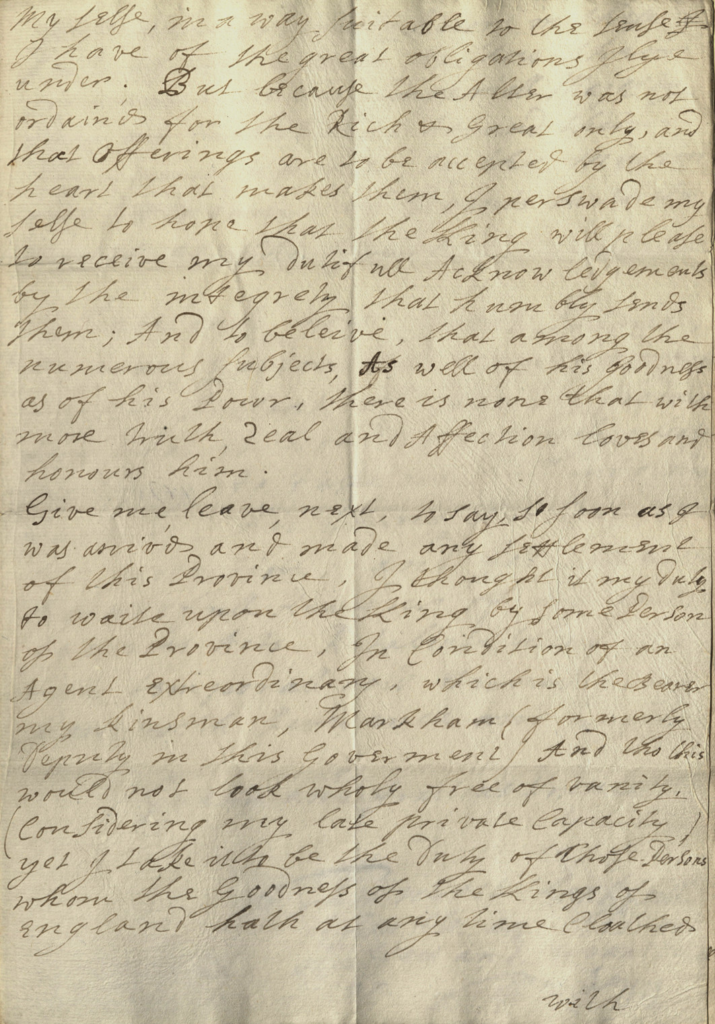 My selfe, in a way suitable to the sense of
I have of the great obligations I lye
under. But because the Alter was not
ordain'd for the Rich & Great only, and
that offerings are to be accepted by the
heart that makes them, I perswade my
selfe to hope that the King will please
to receive my dutifull Acknowledgements
by the integrety that humbly sends
them; And to beleive, that among the
numerous subjects, As well of his goodness
as of his Powr, there is none that with
more truth, zeal and Affection loves and
honours him.
Give me leave, next, to say, so soon as I
was arriv'd, and made any settlement
of this Province, I thought it my duty
to waite upon the King by some Person
of the Province, In Condition of an
Agent extreordinary, which is the Bearer
my kinsman, Markham (formerly
Deputy in this Goverment) And tho this
would not look wholy free of vanity,
(Considering my late private Capacity)
yet I take it to be the duty of those Persons
whom the Goodness of the Kings of
England hath at any time Cloathed
with